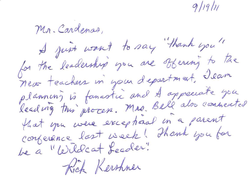 9/19/11
Mr. Cardenas,
I just want to say "thank you"
for the leadership you are offering to the
new teachers in your department. Team
planning is fantastic and I appreciate you
leading this process. Mrs. Bell also commented
that you were exceptional in a parent
conference last week! Thank you for
be a "Wildcat Leader".
Rich Kershner